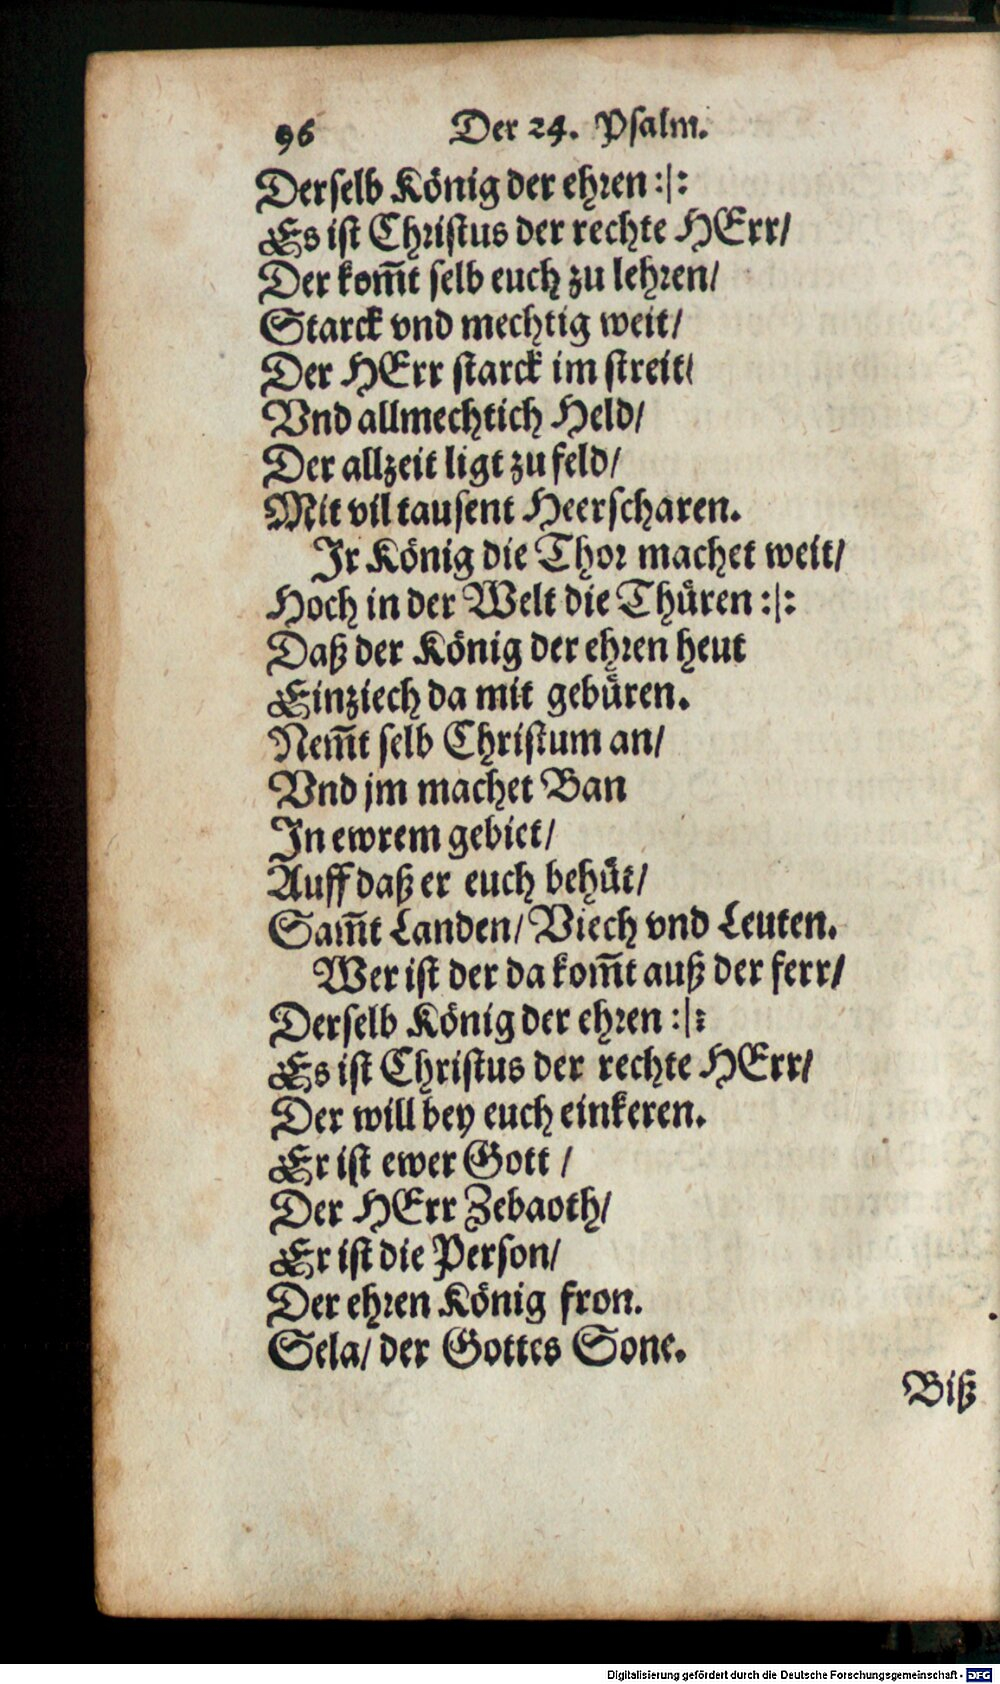 96 Der 24. Psalm.
Derselb König der ehren :|:
Es ist Christus der rechte HErr/
Der kom̃t selb euch zu lehren/
Starck vnd mechtig weit/
Der HErr starck im streit/
Vnd allmechtich Held/
Der allzeit ligt zu feld/
Mit vil tausent Heerscharen.
Ir König die Thor machet weit/
Hoch in der Welt die Thüren :|:
Daß der König der ehren heut
Einziech da mit gebüren.
Nem̃t selb Christum an/
Vnd jm machet Ban
In ewrem gebiet/
Auff daß er euch behüt/
Sam̃t Landen/ Viech vnd Leuten.
Wer ist der da kom̃t auß der ferr/
Derselb König der ehren :|:
Es ist Christus der rechte HErr/
Der will bey euch einkeren.
Er ist ewer Gott /
Der HErr Zebaoth/
Er ist die Person/
Der ehren König fron.
Sela/ der Gottes Sone.
Biß
Digitalisierung gefördert durch die Deutsche Forschungsgemeinschaft - DFG